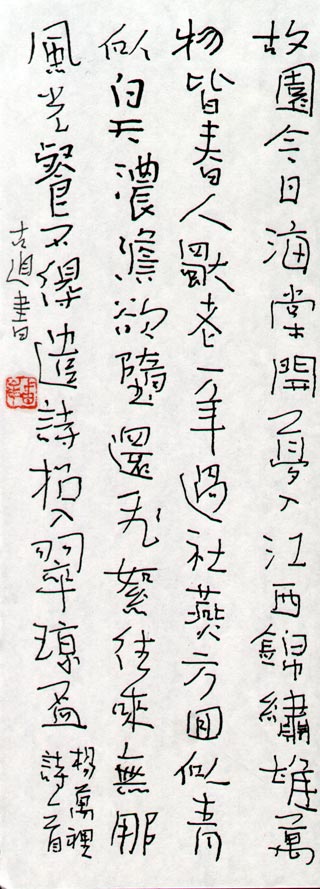 故園今日海棠開夢入江西錦繡堆萬
物皆春人獨老一年過社燕方回似青
似白天濃澹欲墮還飛絮往來無那
風光餐不得遣詩招入翠瓊盃
楊萬裡
詩一首
古道書